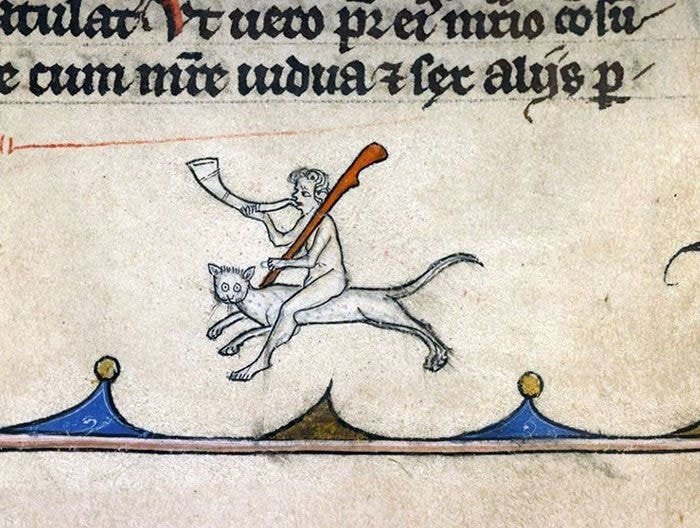 atulat Ut uero pr ei mrio cosu
e cum mre uidua ⁊ sex alijs p